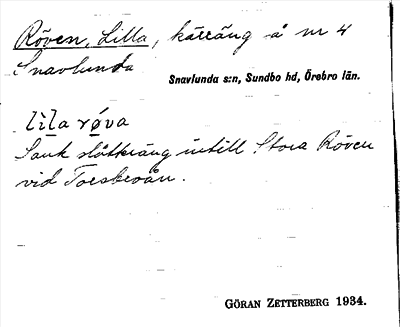 Röven, Lilla, kärräng å nr 4
Snavlunda
Snavlunda s:n, Sundbo hd, Örebro län.
lìla rø̀va
Sank slåtteräng intill Stora Röven
vid Torsbroån.
GÖRAN ZETTERBERG 1934.